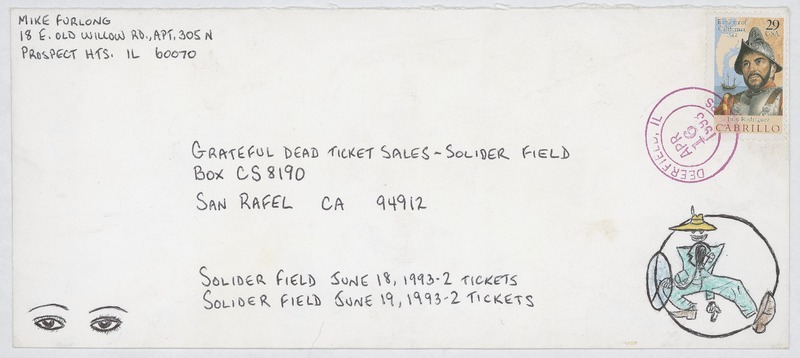 MIKE FURLONG
18 E. OLD WILLOW RD., APT. 305 N
PROSPECT HTS. IL 60070
29
USA
of California
Juan Rodríguez
CABRILLO
DEERFIELD, IL
APR
16
1993
GRATEFUL DEAD TICKET SALES - SOLIDER FIELD
BOX CS 8190
SAN RAFEL CA 94912
SOLIDER FIELD JUNE 18, 1993 - 2 TICKETS
SOLIDER FIELD JUNE 19, 1993 - 2 TICKETS